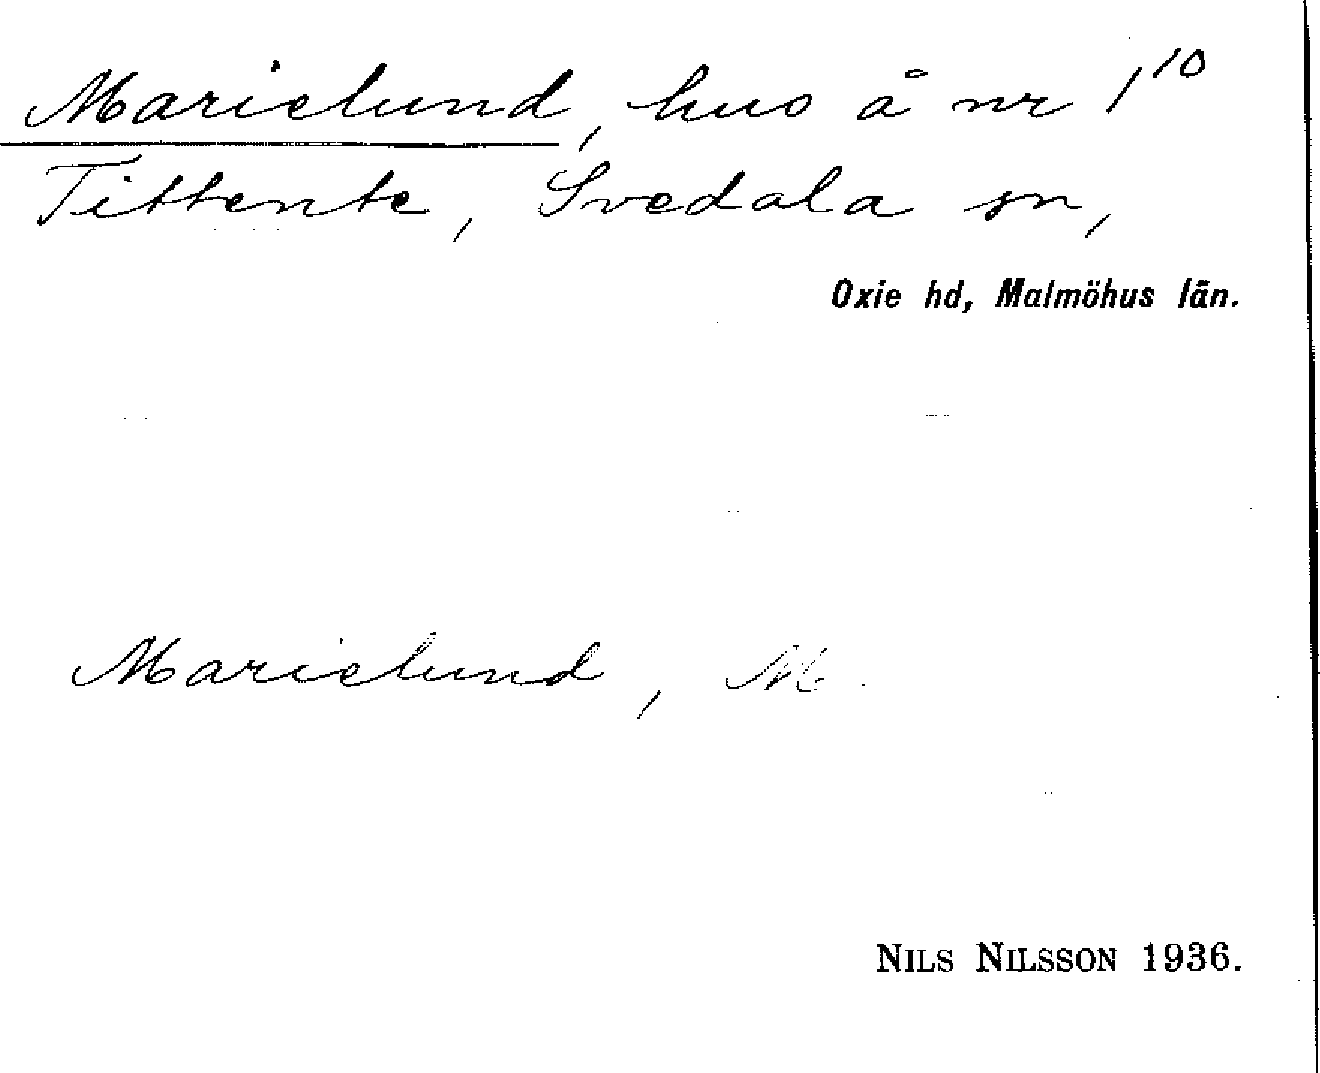 Marielund, hus å nr 1¹⁰
Tittente, Svedala sn,
Oxie hd, Malmöhus län.
Marielund, M.
NILS NILSSON 1936.